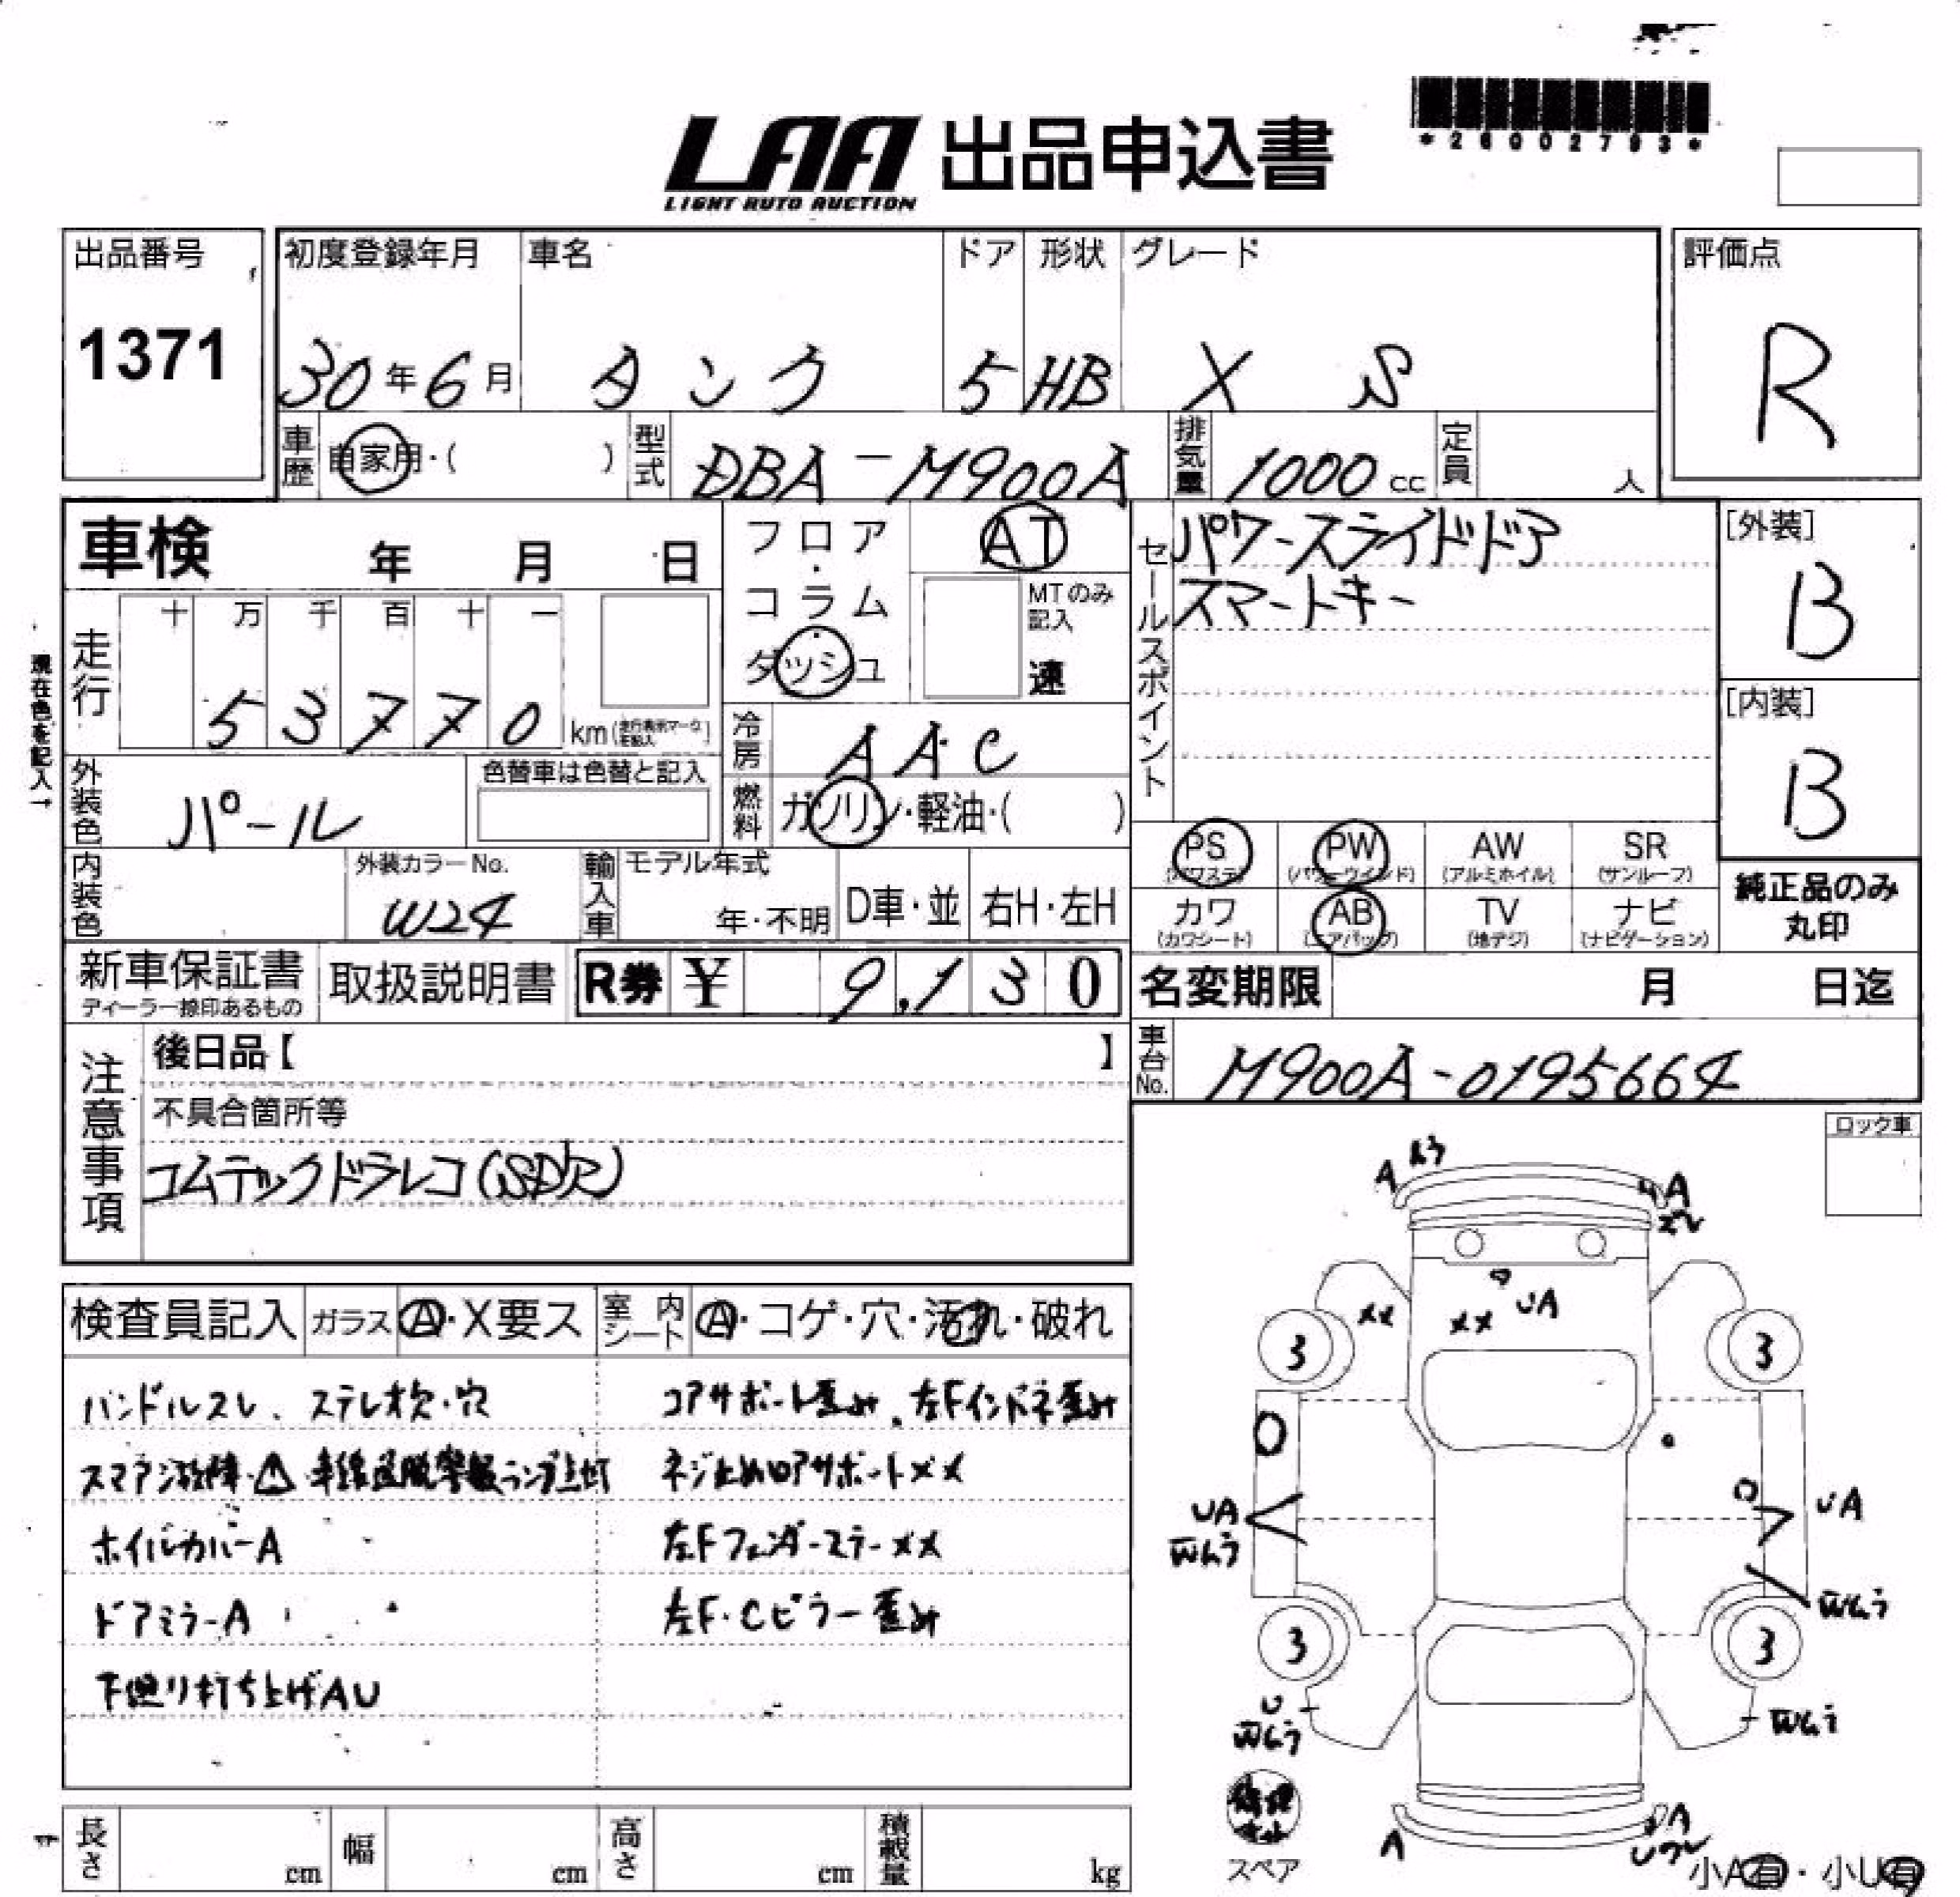 *26002793*
LAA 出品申込書
LIGHT AUTO AUCTION
出品番号
1371
初度登録年月 車名 ドア 形状 グレード
30年6月 タンク 5 HB X S
評価点
R
車歴 自家用・( ) 型式 DBA-M900A 排気量 1000cc 定員 人
車検 年 月 日
フロア・コラム ダッシュ
AT
MTのみ記入
速
セールスポイント
パワースライドドア
スマートキー
[外装]
B
[内装]
B
現在色を記入→
走行 十 万 千 百 十 一
5 3 7 7 0 km
冷房 AAC
外装色 パール
色替車は色替と記入
燃料 ガソリン・軽油・( )
内装色
外装カラーNo.
W24
輸入車 モデル年式
年・不明 D車・並 右H・左H
PS (パワステ) PW (パワーウインド) AW (アルミホイル) SR (サンルーフ)
カワ (カワシート) AB (エアバッグ) TV (地デジ) ナビ (ナビゲーション)
純正品のみ
丸印
新車保証書
ディーラー捺印あるもの
取扱説明書
R券 ¥ 9,130
名変期限 月 日迄
注意事項
後日品【 】
車台No. M900A-0195664
不具合箇所等
コムテックドラレコ(SD欠)
ロック車
検査員記入 ガラス A・X要ス 室内シート A・コゲ・穴・汚れ・破れ
ハンドルスレ、ステレオ欠・穴
スマアシ故障・⚠・車線逸脱警報ランプ点灯
ホイルカバーA
ドアミラーA
下廻り打ち上げAU
コアサポート歪み、左Fインパネ歪み
ネジ止めロアサポートXX
左FフェンダーステーXX
左F・Cピラー歪み
A ムラ
A ズレ
XX XX UA
3 3
UA Wムラ
UA
Wムラ
3 3
U Wムラ
Wムラ
修理キット
スペア
A
A
Uワレ
小A有・小U有
長さ cm 幅 cm 高さ cm 積載量 kg